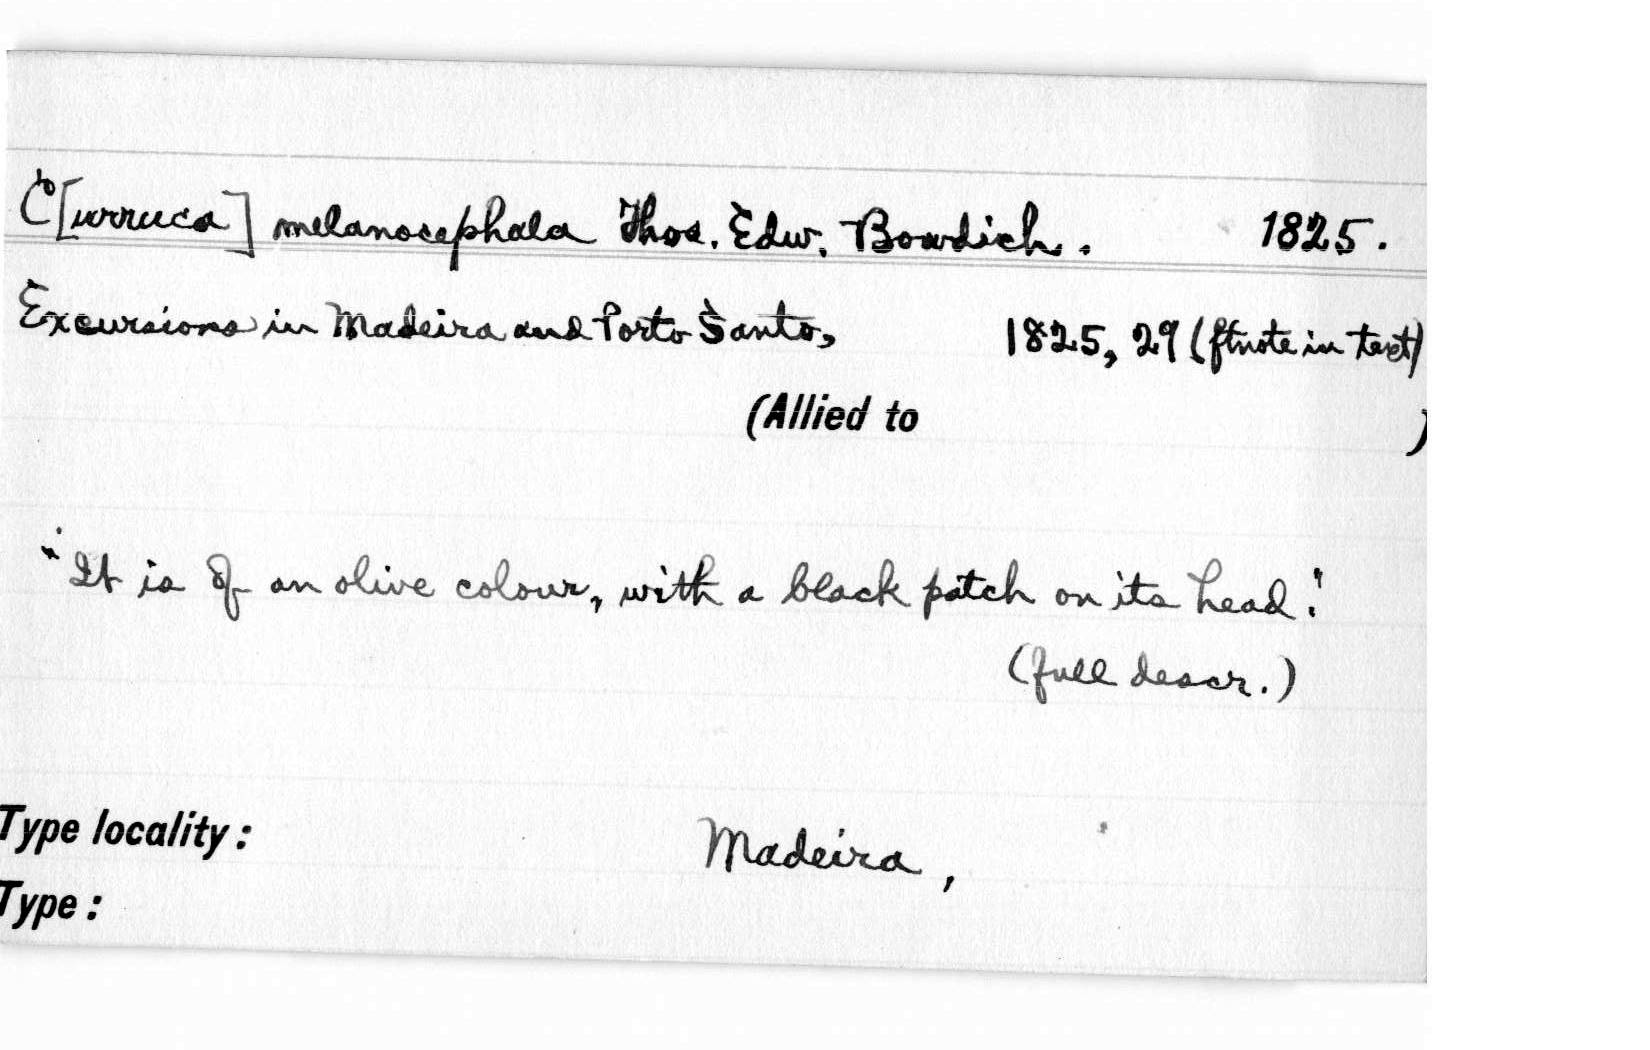 C[urruca] melanocephala Thos. Edw. Bowdich. 1825.
Excursions in Madeira and Porto Santo, 1825, 29 (ftnote in text)
(Allied to )
"It is of an olive colour, with a black patch on its head."
(full descr.)
Type locality: Madeira,
Type: